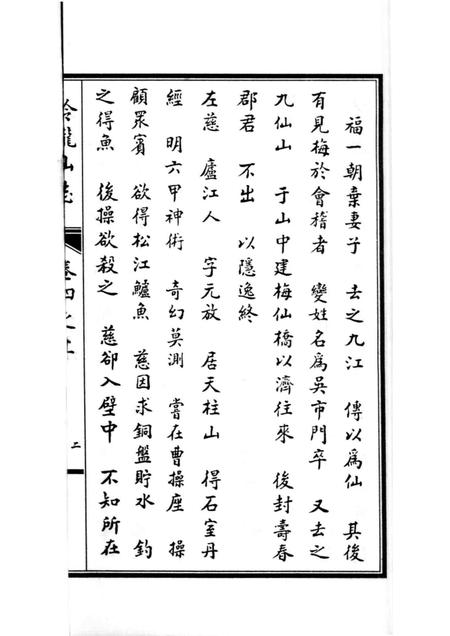 福一朝棄妻子 去之九江 傳以爲仙 其後
有見梅於會稽者 變姓名爲吳市門卒 又去之
九仙山 于山中建梅仙橋以濟往來 後封壽春
郡君 不出 以隱逸終
左慈 廬江人 字元放 居天柱山 得石室丹
經 明六甲神術 奇幻莫測 嘗在曹操座 操
顧眾賓 欲得松江鱸魚 慈因求銅盤貯水 釣
之得魚 後操欲殺之 慈卻入壁中 不知所在
山志
卷四之
二